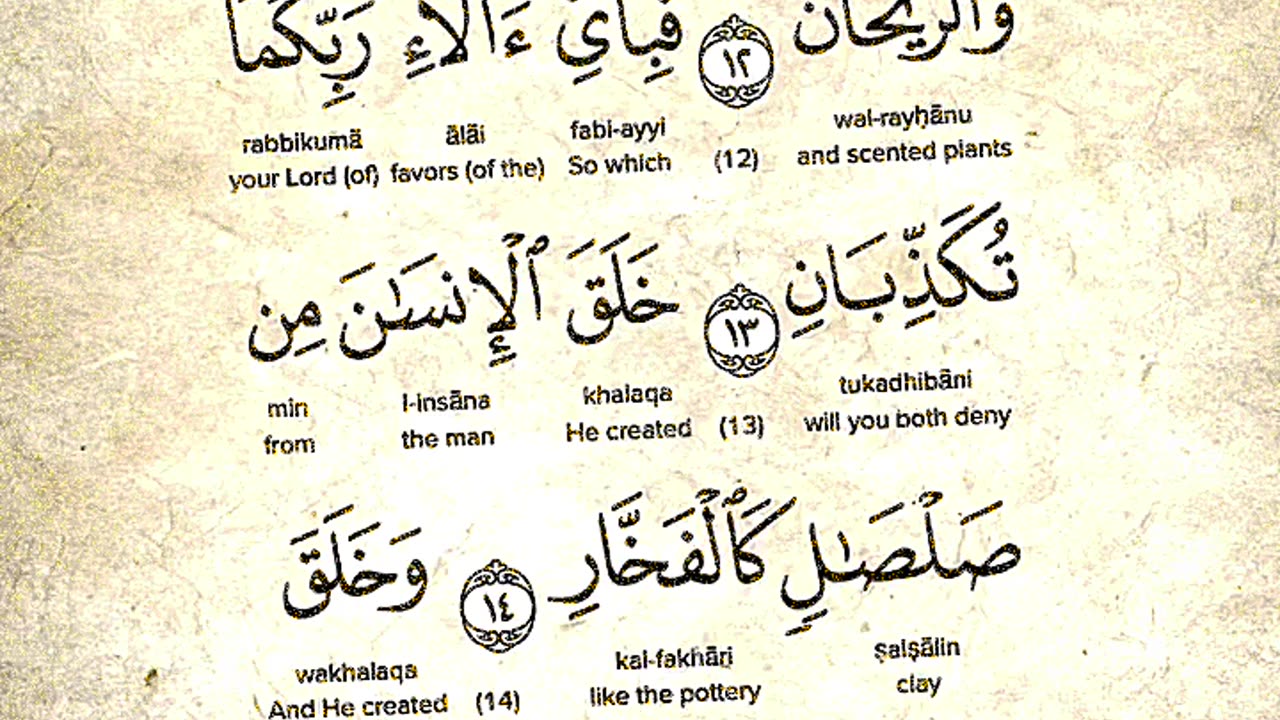 وَٱلرَّيْحَانُ ١٢ فَبِأَيِّ ءَالَآءِ رَبِّكُمَا
rabbikumā ālāi fabi-ayyi wal-rayḥānu
your Lord (of) favors (of the) So which (12) and scented plants
تُكَذِّبَانِ ١٣ خَلَقَ ٱلْإِنسَـٰنَ مِن
min l-insāna khalaqa tukadhibāni
from the man He created (13) will you both deny
صَلْصَـٰلٍ كَٱلْفَخَّارِ ١٤ وَخَلَقَ
wakhalaqa kal-fakhāri ṣalṣālin
And He created (14) like the pottery clay